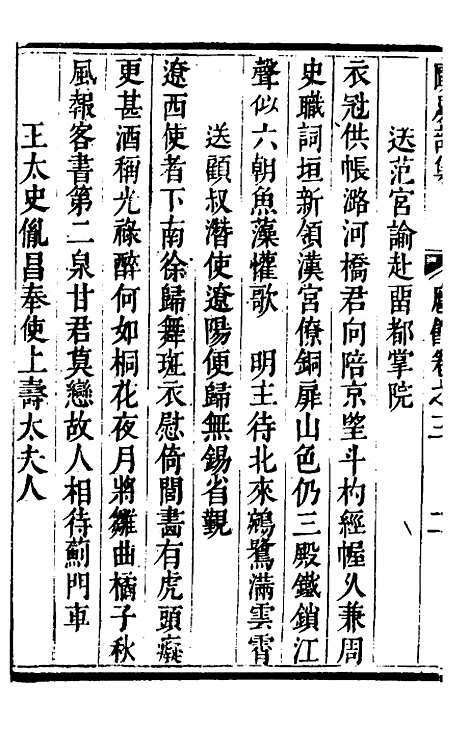 送范宮諭赴畱都掌院
衣冠供帳潞河橋君向陪京望斗杓經幄久兼周
史職詞垣新領漢宮僚銅扉山色仍三殿鐵鎖江
聲似六朝魚藻懽歌　明主待北來鵷鷺滿雲霄
送顧叔潛使遼陽便歸無錫省覲
遼西使者下南徐歸舞斑衣慰倚閭畵有虎頭癡
更甚酒稱光祿醉何如桐花夜月將雛曲橘子秋
風報客書第二泉甘君莫戀故人相待薊門車
王太史胤昌奉使上壽太夫人